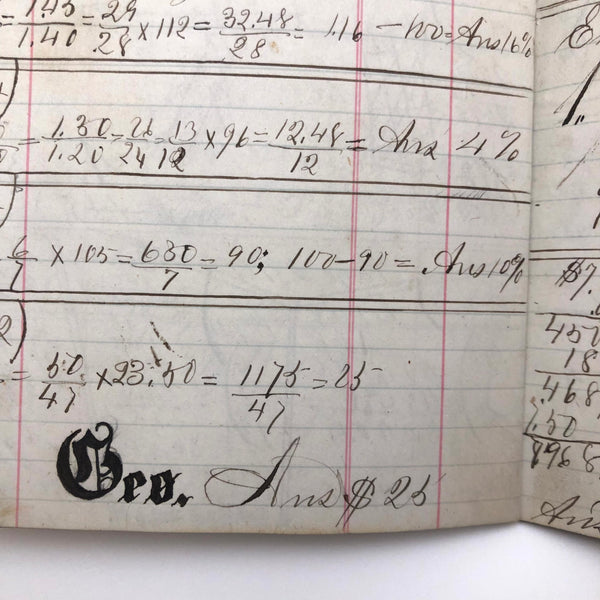 = 1.45/1.40 = 29/28 × 112 = 32.48/28 = 1.16 - 100 = Ans 16%
= 1.30/1.20 = 26/24 13/12 × 96 = 12.48/12 = Ans 4%
6/7 × 105 = 630/7 = 90; 100 - 90 = Ans 10%
2)
= 50/47 × 23.50 = 1175/47 = 25
Geo. Ans $ 25
$7.
450
18
.468
7.50
8968
Ans